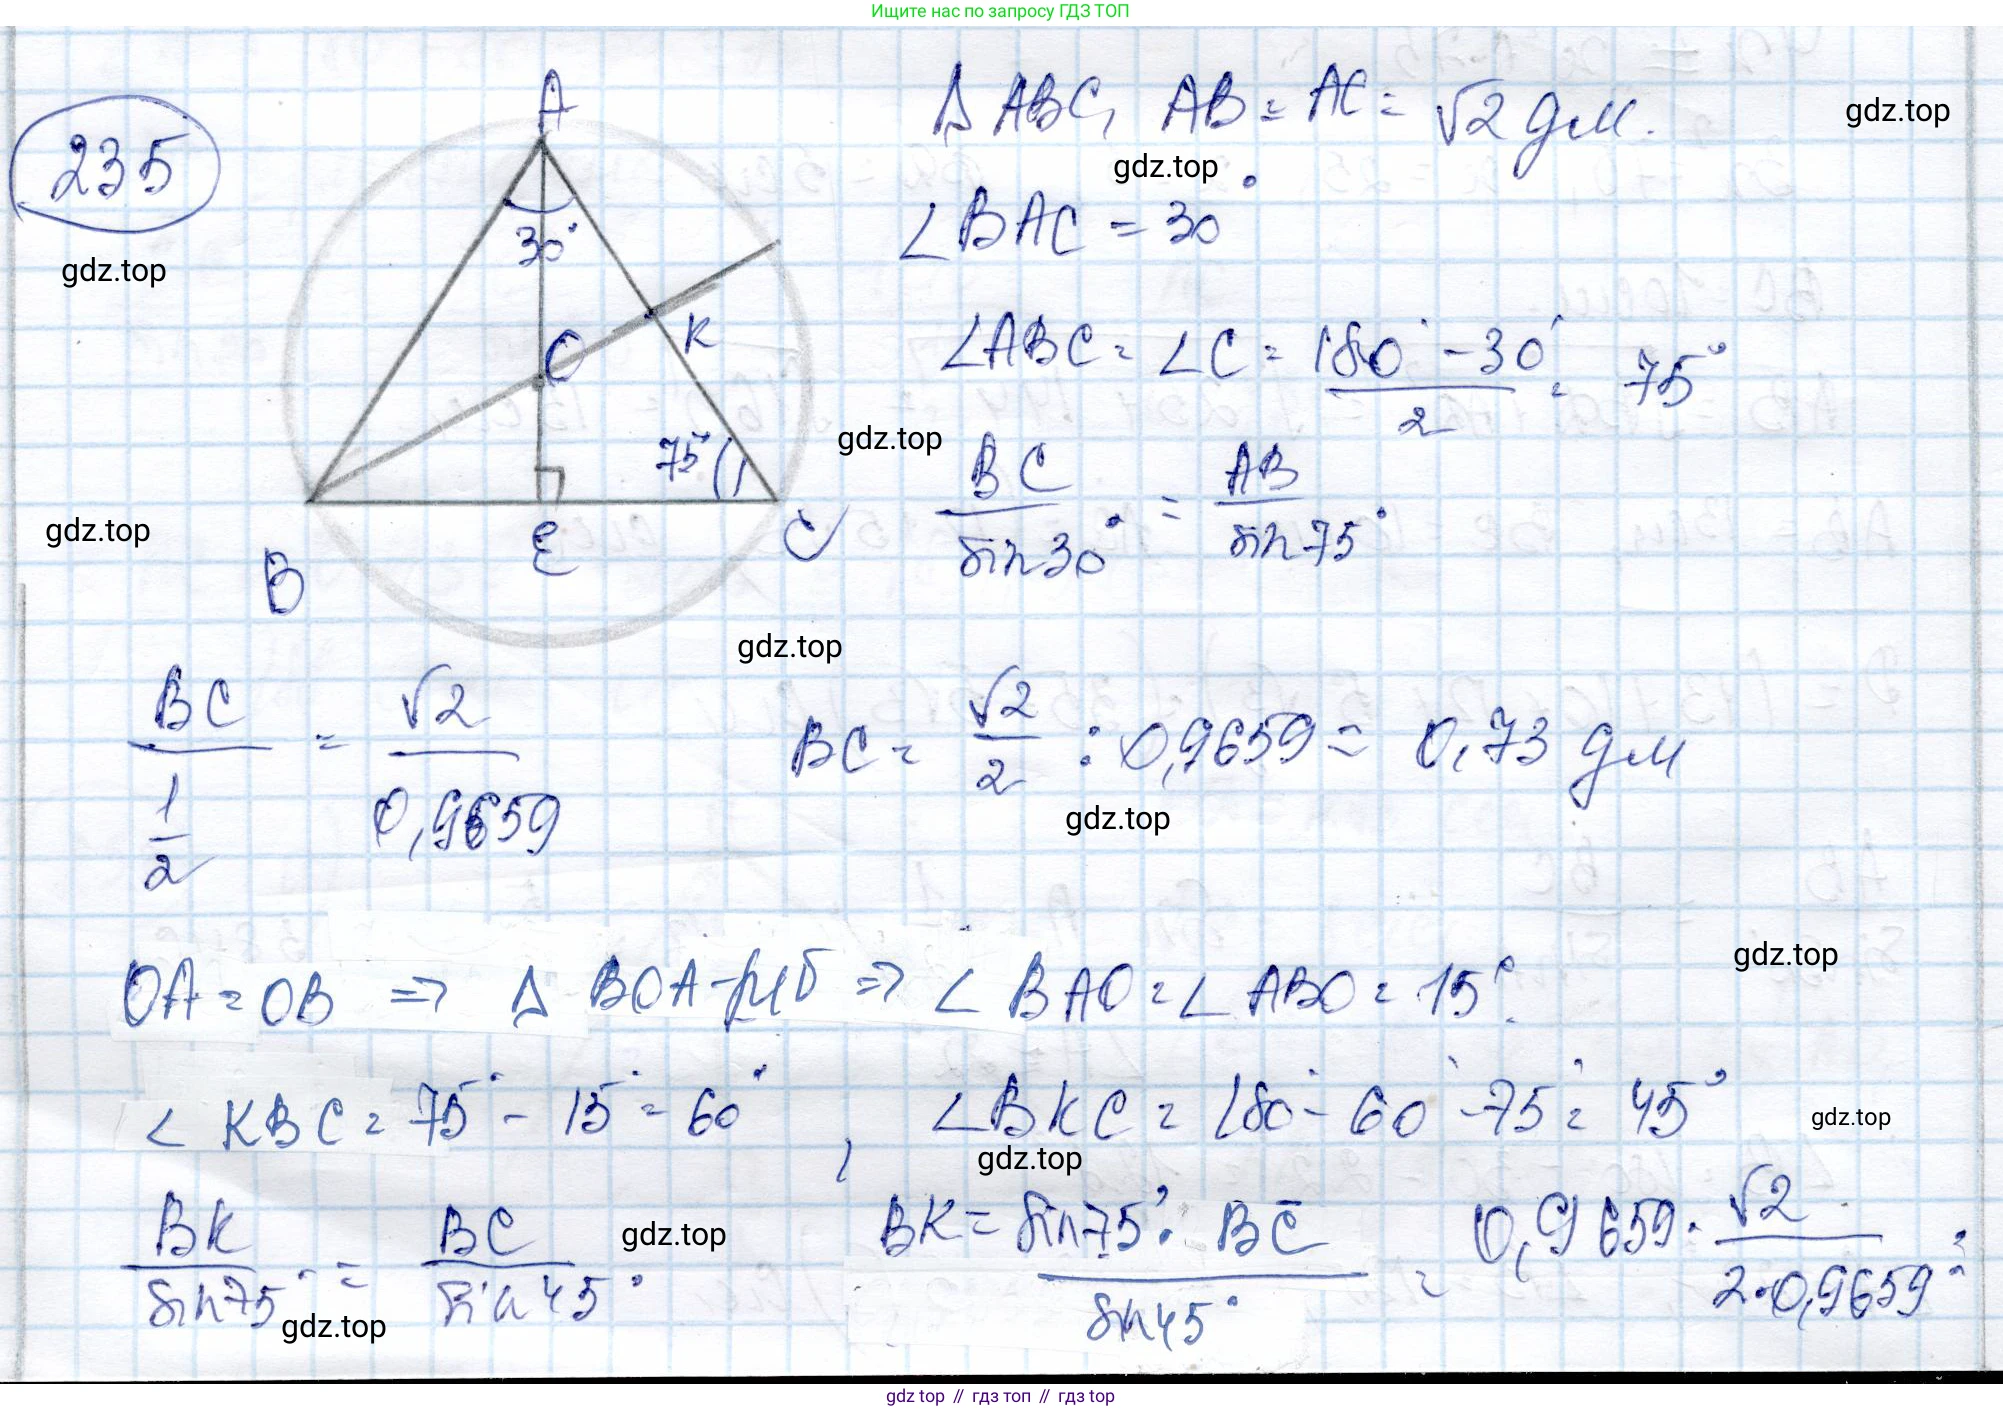 Ищите нас по запросу ГДЗ ТОП
235
gdz.top
A
30°
O
K
75°
B
E
C
gdz.top
Δ ABC, AB = AC = √2 дм.
gdz.top
gdz.top
∠BAC = 30°
∠ABC = ∠C = (180° - 30°)/2 = 75°
gdz.top
BC/sin30° = AB/sin75°
gdz.top
BC/(1/2) = √2/0,9659
BC = √2/2 : 0,9659 = 0,73 дм
gdz.top
gdz.top
OA = OB => Δ BOA - р/б => ∠BAO = ∠ABO = 15°.
∠KBC = 75° - 15° = 60°, ∠BKC = 180° - 60° - 75° = 45°
gdz.top
gdz.top
BK/sin75° = BC/sin45°
gdz.top
gdz.top
BK = sin75° · BC/sin45° = 0,9659 · √2/2·0,9659 =
gdz top // гдз топ // гдз top